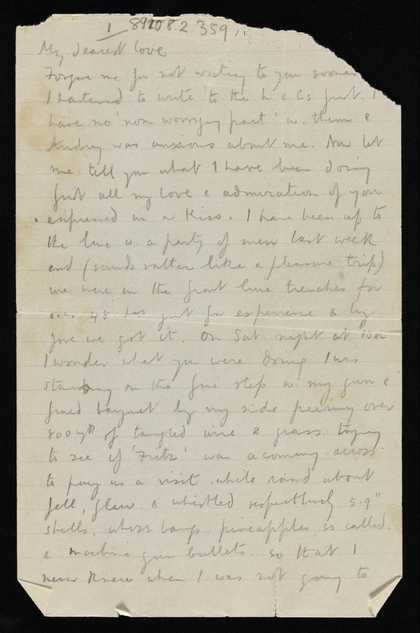 1 892082 359
My dearest Love
Forgive me for not writing to you sooner
I hastened to write to the first. I
have no 'non worrying pact' w. them &
Audrey was anxious about me. Now let
me tell you what I have been doing
first all my love & admiration of you
expressed in a Kiss. I have been up to
the line w. a party of men last week
end (sounds rather like a pleasure trip)
we were in the front line trenches for
over 48 hrs just for experience & by
Jove we got it. On Sat. night at
I wonder what you were doing I was
standing on the fire step w. my gun &
fixed bayonet by my side peering over
800 yds of tangled wire & grass trying
to see if 'Fritz' was acoming across
to pay us a visit while round about
fell, flew & whistled respectively 5.9"
shells, whizz bangs pineapples so called
& machine gun bullets. so that I
never knew when I was not going to